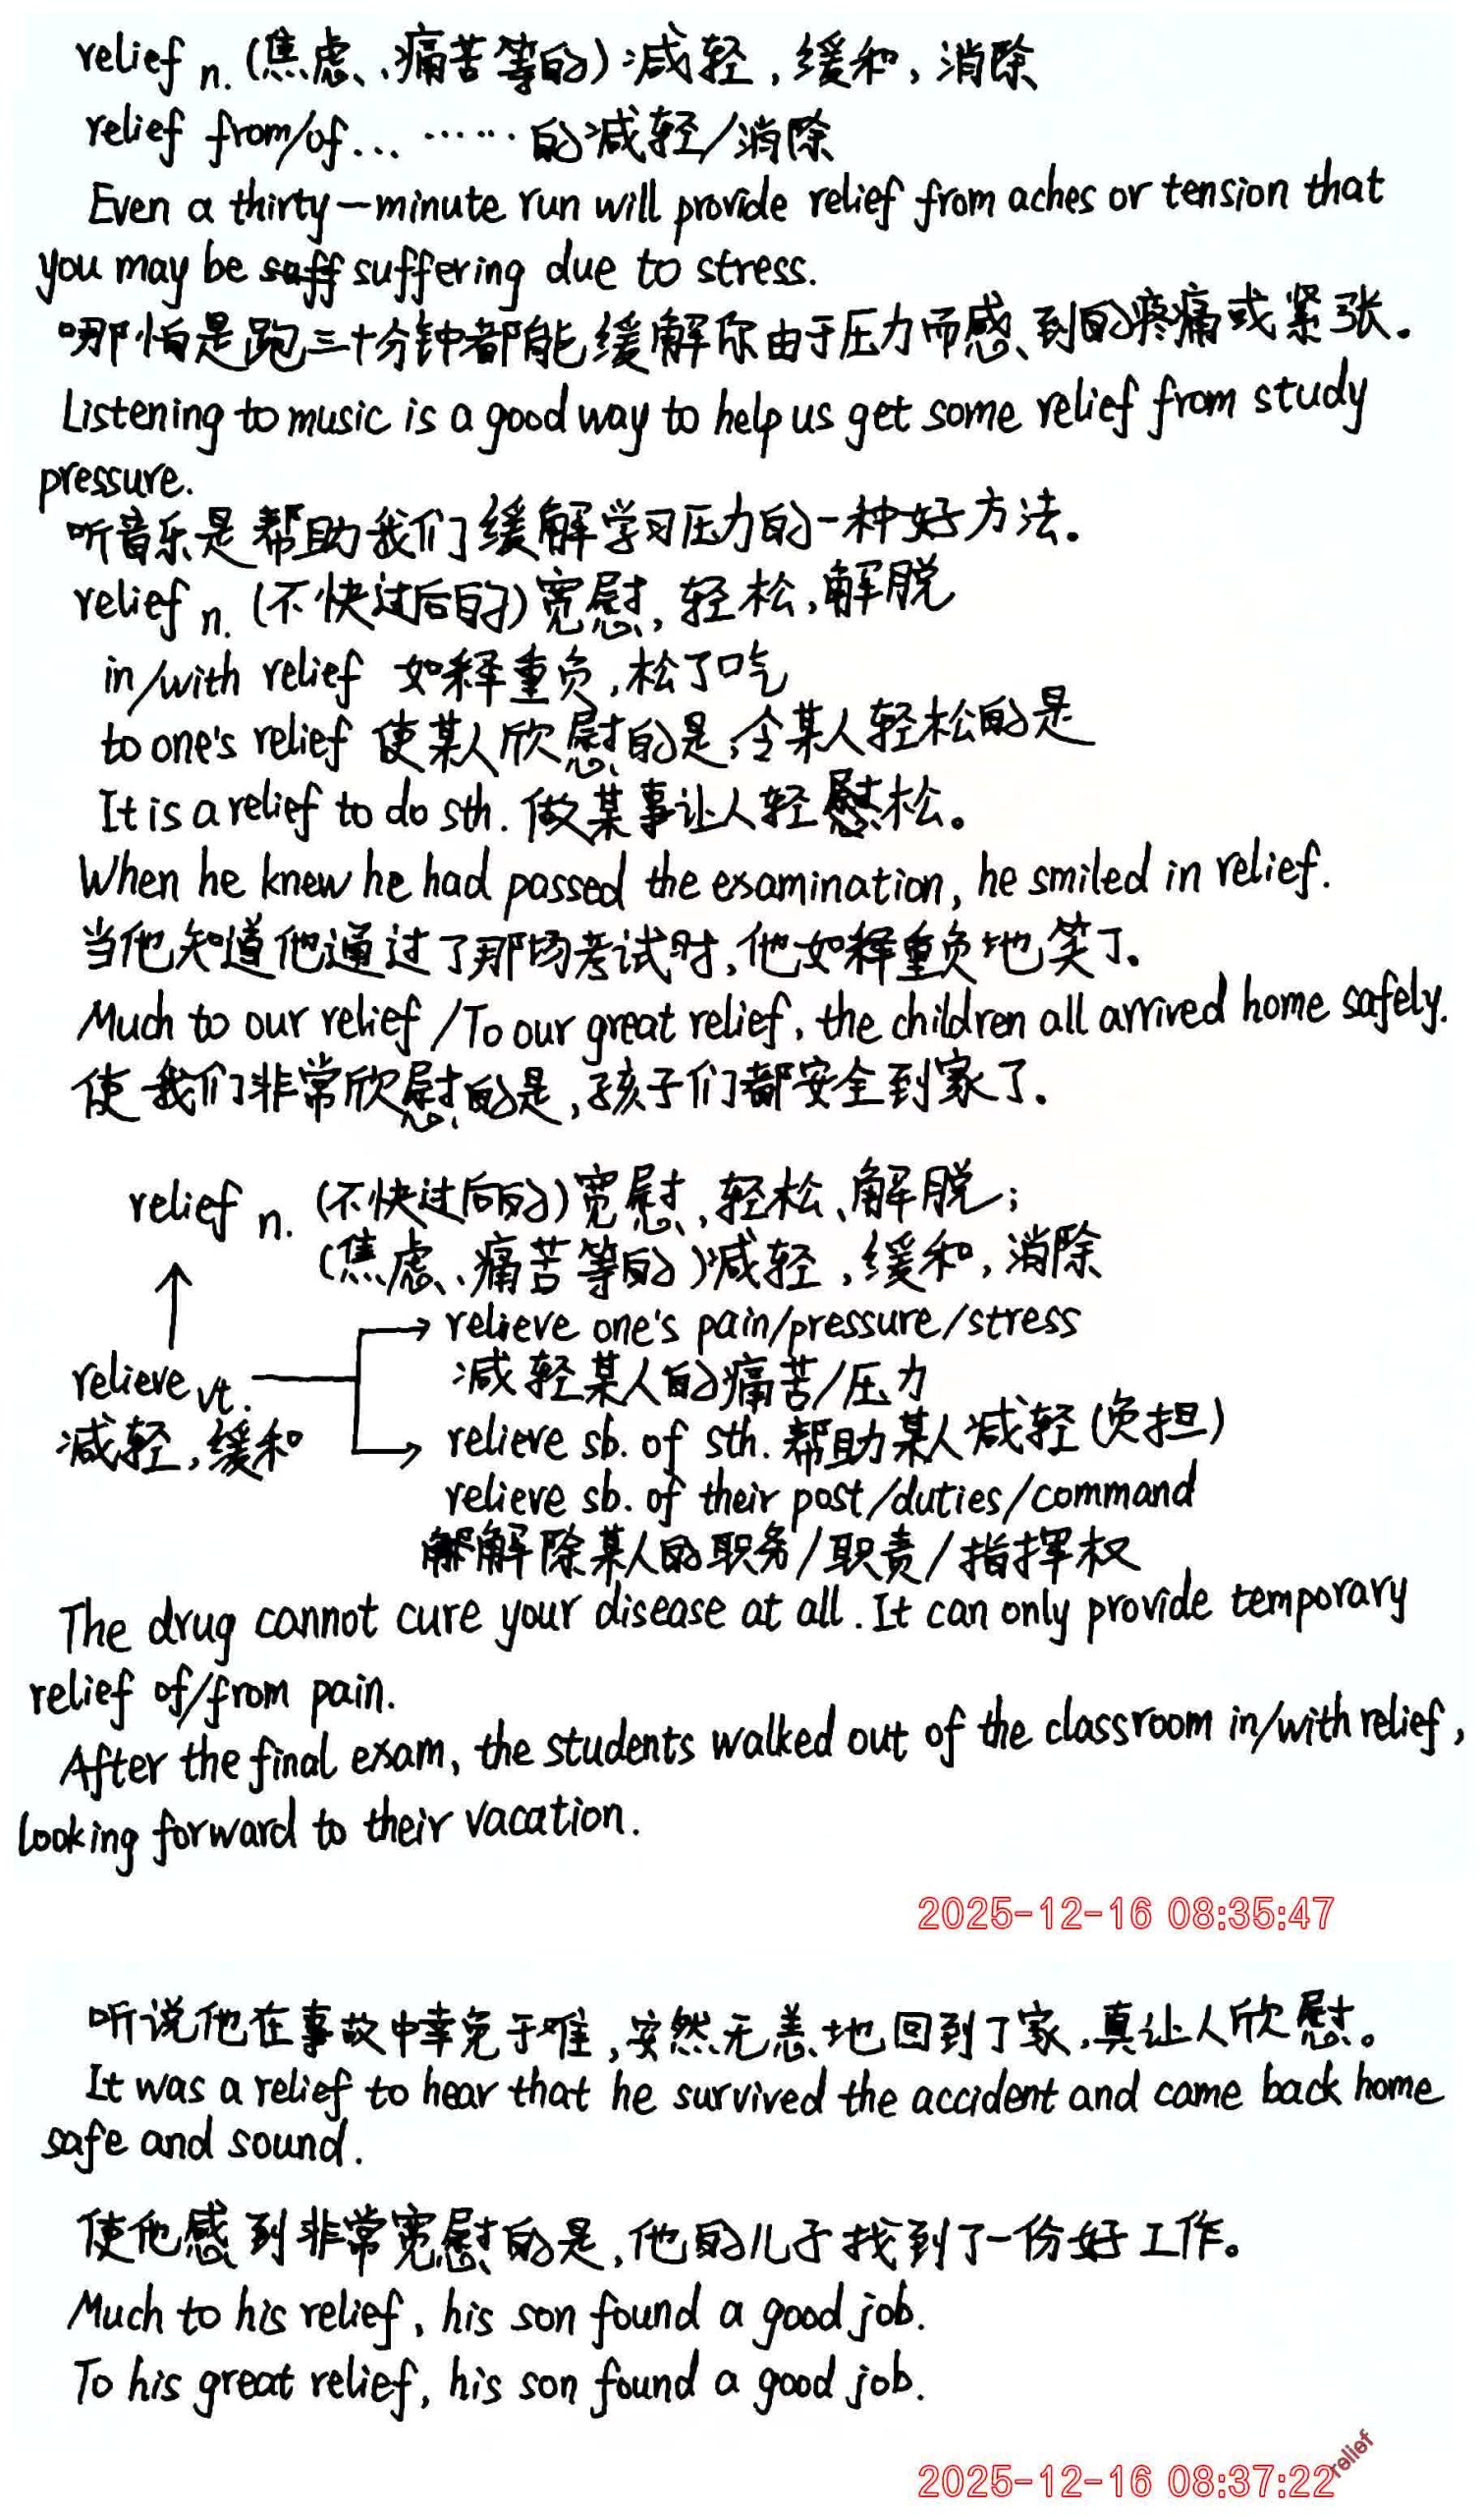 relief n. (焦虑、痛苦等的)减轻,缓和,消除
relief from/of... ……的减轻/消除
Even a thirty-minute run will provide relief from aches or tension that
you may be suffering due to stress.
哪怕是跑三十分钟都能缓解你由于压力而感到的疼痛或紧张。
Listening to music is a good way to help us get some relief from study
pressure.
听音乐是帮助我们缓解学习压力的一种好方法。
relief n. (不快过后的)宽慰,轻松,解脱
in/with relief 如释重负,松了口气
to one's relief 使某人欣慰的是,令某人轻松的是
It is a relief to do sth. 做某事让人轻松。
When he knew he had passed the examination, he smiled in relief.
当他知道他通过了那场考试时,他如释重负地笑了。
Much to our relief/To our great relief, the children all arrived home safely.
使我们非常欣慰的是,孩子们都安全到家了。
relief n. (不快过后的)宽慰,轻松、解脱;
(焦虑、痛苦等的)减轻,缓和,消除
relieve one's pain/pressure/stress
减轻某人的痛苦/压力
relieve vt.
减轻,缓和
relieve sb. of sth. 帮助某人减轻(负担)
relieve sb. of their post/duties/command
解除某人的职务/职责/指挥权
The drug cannot cure your disease at all. It can only provide temporary
relief of/from pain.
After the final exam, the students walked out of the classroom in/with relief,
looking forward to their vacation.
2025-12-16 08:35:47
听说他在事故中幸免于难,安然无恙地回到了家,真让人欣慰。
It was a relief to hear that he survived the accident and came back home
safe and sound.
使他感到非常宽慰的是,他的儿子找到了一份好工作。
Much to his relief, his son found a good job.
To his great relief, his son found a good job.
2025-12-16 08:37:22
relief